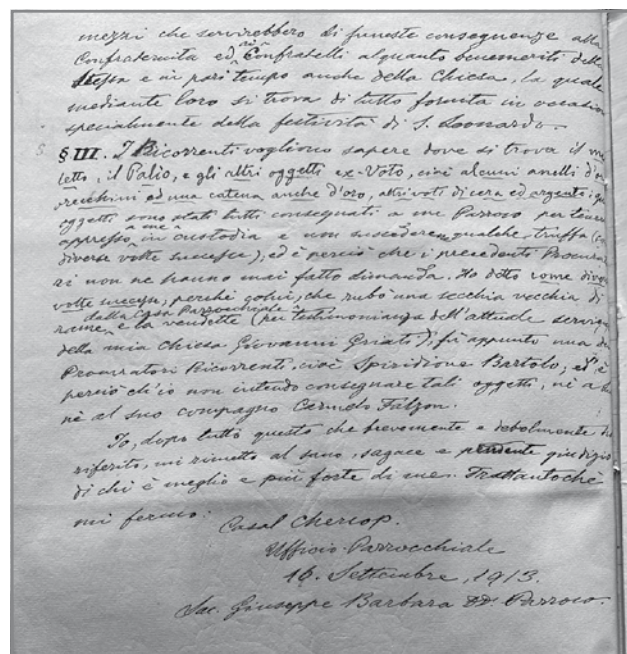 mezzi che servirebbero di funeste conseguenze alla
Confraternita ed ai Confratelli alquanto benemeriti della
stessa e in pari tempo anche della Chiesa, la quale
mediante loro si trova di tutto fornita in occasion
specialmente della festività di S. Leonardo.
§ III. I Ricorrenti vogliono sapere dove si trova il
letto, il Palio, e gli altri oggetti ex-Voto, cioè alcuni anelli d'o
orecchini ed una catena anche d'oro, altri voti di cera ed argento; i
oggetti sono stati tutti consegnati a me Parroco per tener
appresso a me in custodia e non succedere qualche truffa (
diverse volte successe), ed è perciò che i precedenti Procura
ri non ne hanno mai fatto dimanda. Ho detto come diver
volte successe, perchè colui, che rubò una secchia vecchia di
rame dalla Casa Parrocchiale e la vendette (per testimonianza dell'attuale servien
della mia chiesa Giovanni Griati), fù appunto uno dei
Procuratori Ricorrenti, cioè Spiridione Bartolo; ed è
perciò ch'io non intendo consegnare tali oggetti, nè a lui
nè al suo compagno Carmelo Falzon.
Io, dopo tutto questo che brevemente e debolmente ho
riferito, mi rimetto al sano, sagace e prudente giudizio
di chi è meglio e più forte di me. Trattantochè
mi fermo:
Casal Chercop.
Ufficio Parrocchiale
16. Settembre, 1913.
Sac. Giuseppe Barbara Parroco.